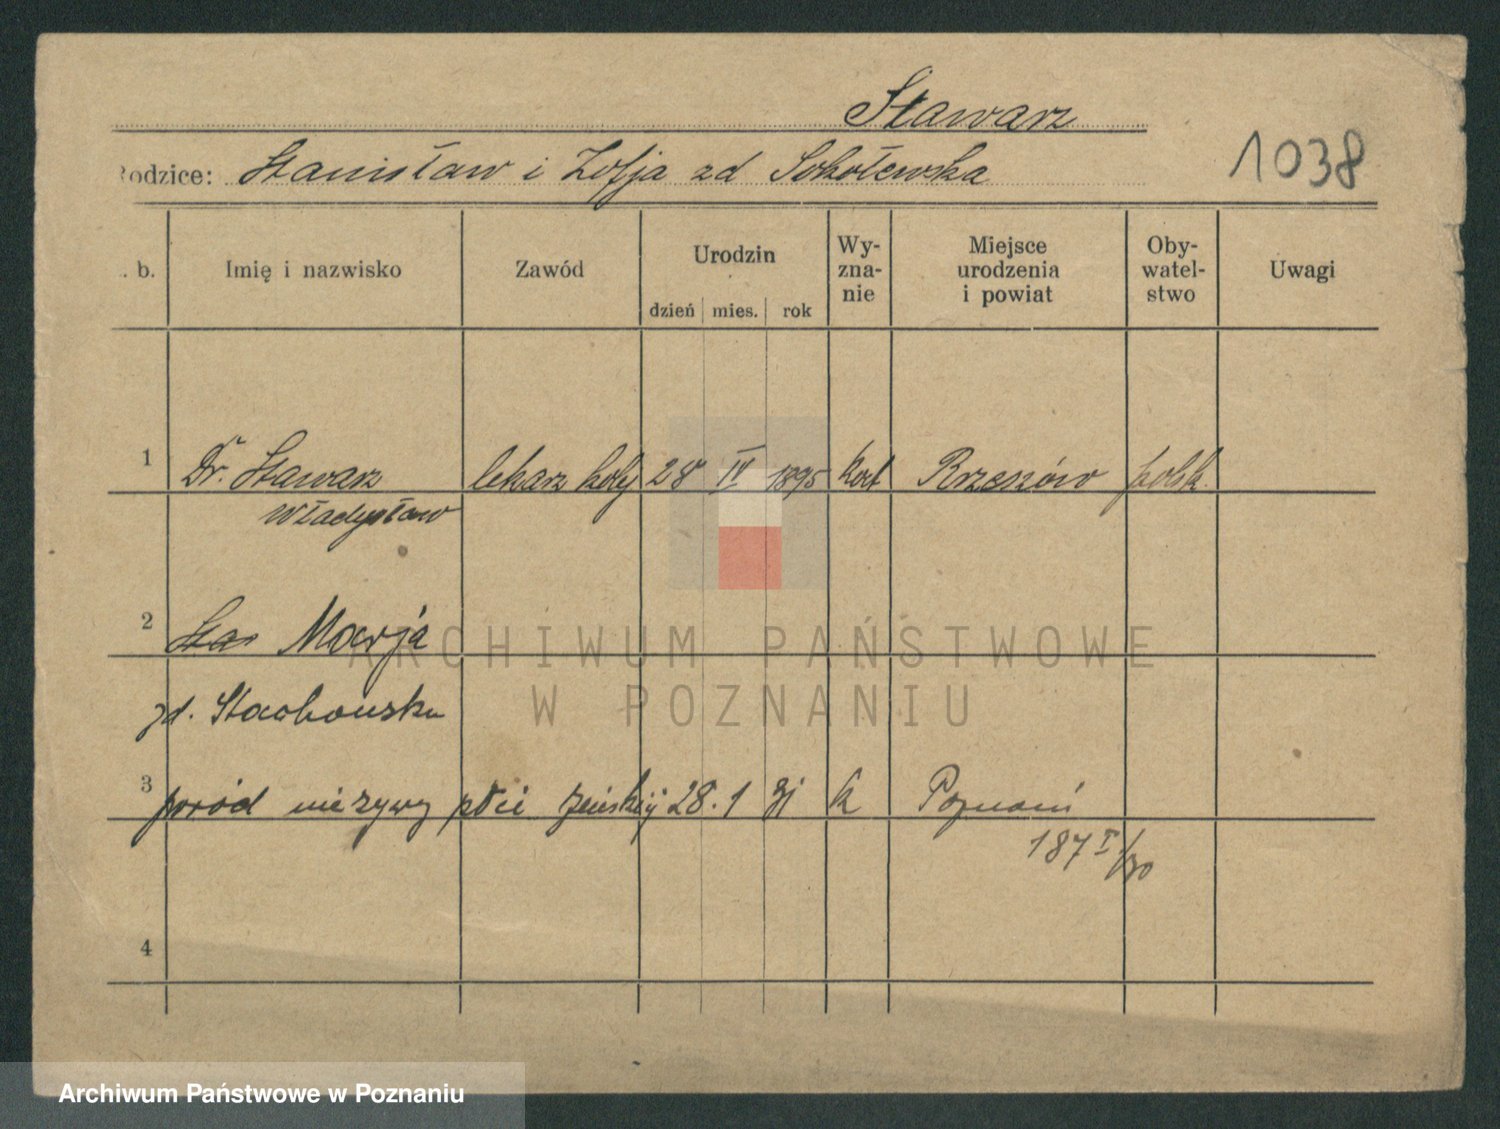 Stawarz
Rodzice: Stanisław i Zofja zd Sokołewska
1038
. b.
Imię i nazwisko
Zawód
Urodzin
dzień mies. rok
Wy-
zna-
nie
Miejsce
urodzenia
i powiat
Oby-
watel-
stwo
Uwagi
1 Dr. Stawarz lekarz kolej 28 IV 1895 Kat Rzeszów polsk.
Władysław
2 Sta Marja
zd. Stachowska
3 poród nieżywy płci żeńskiej 28. 1 31 k Poznań
187 I/30
4
ARCHIWUM PAŃSTWOWE
W POZNANIU
Archiwum Państwowe w Poznaniu